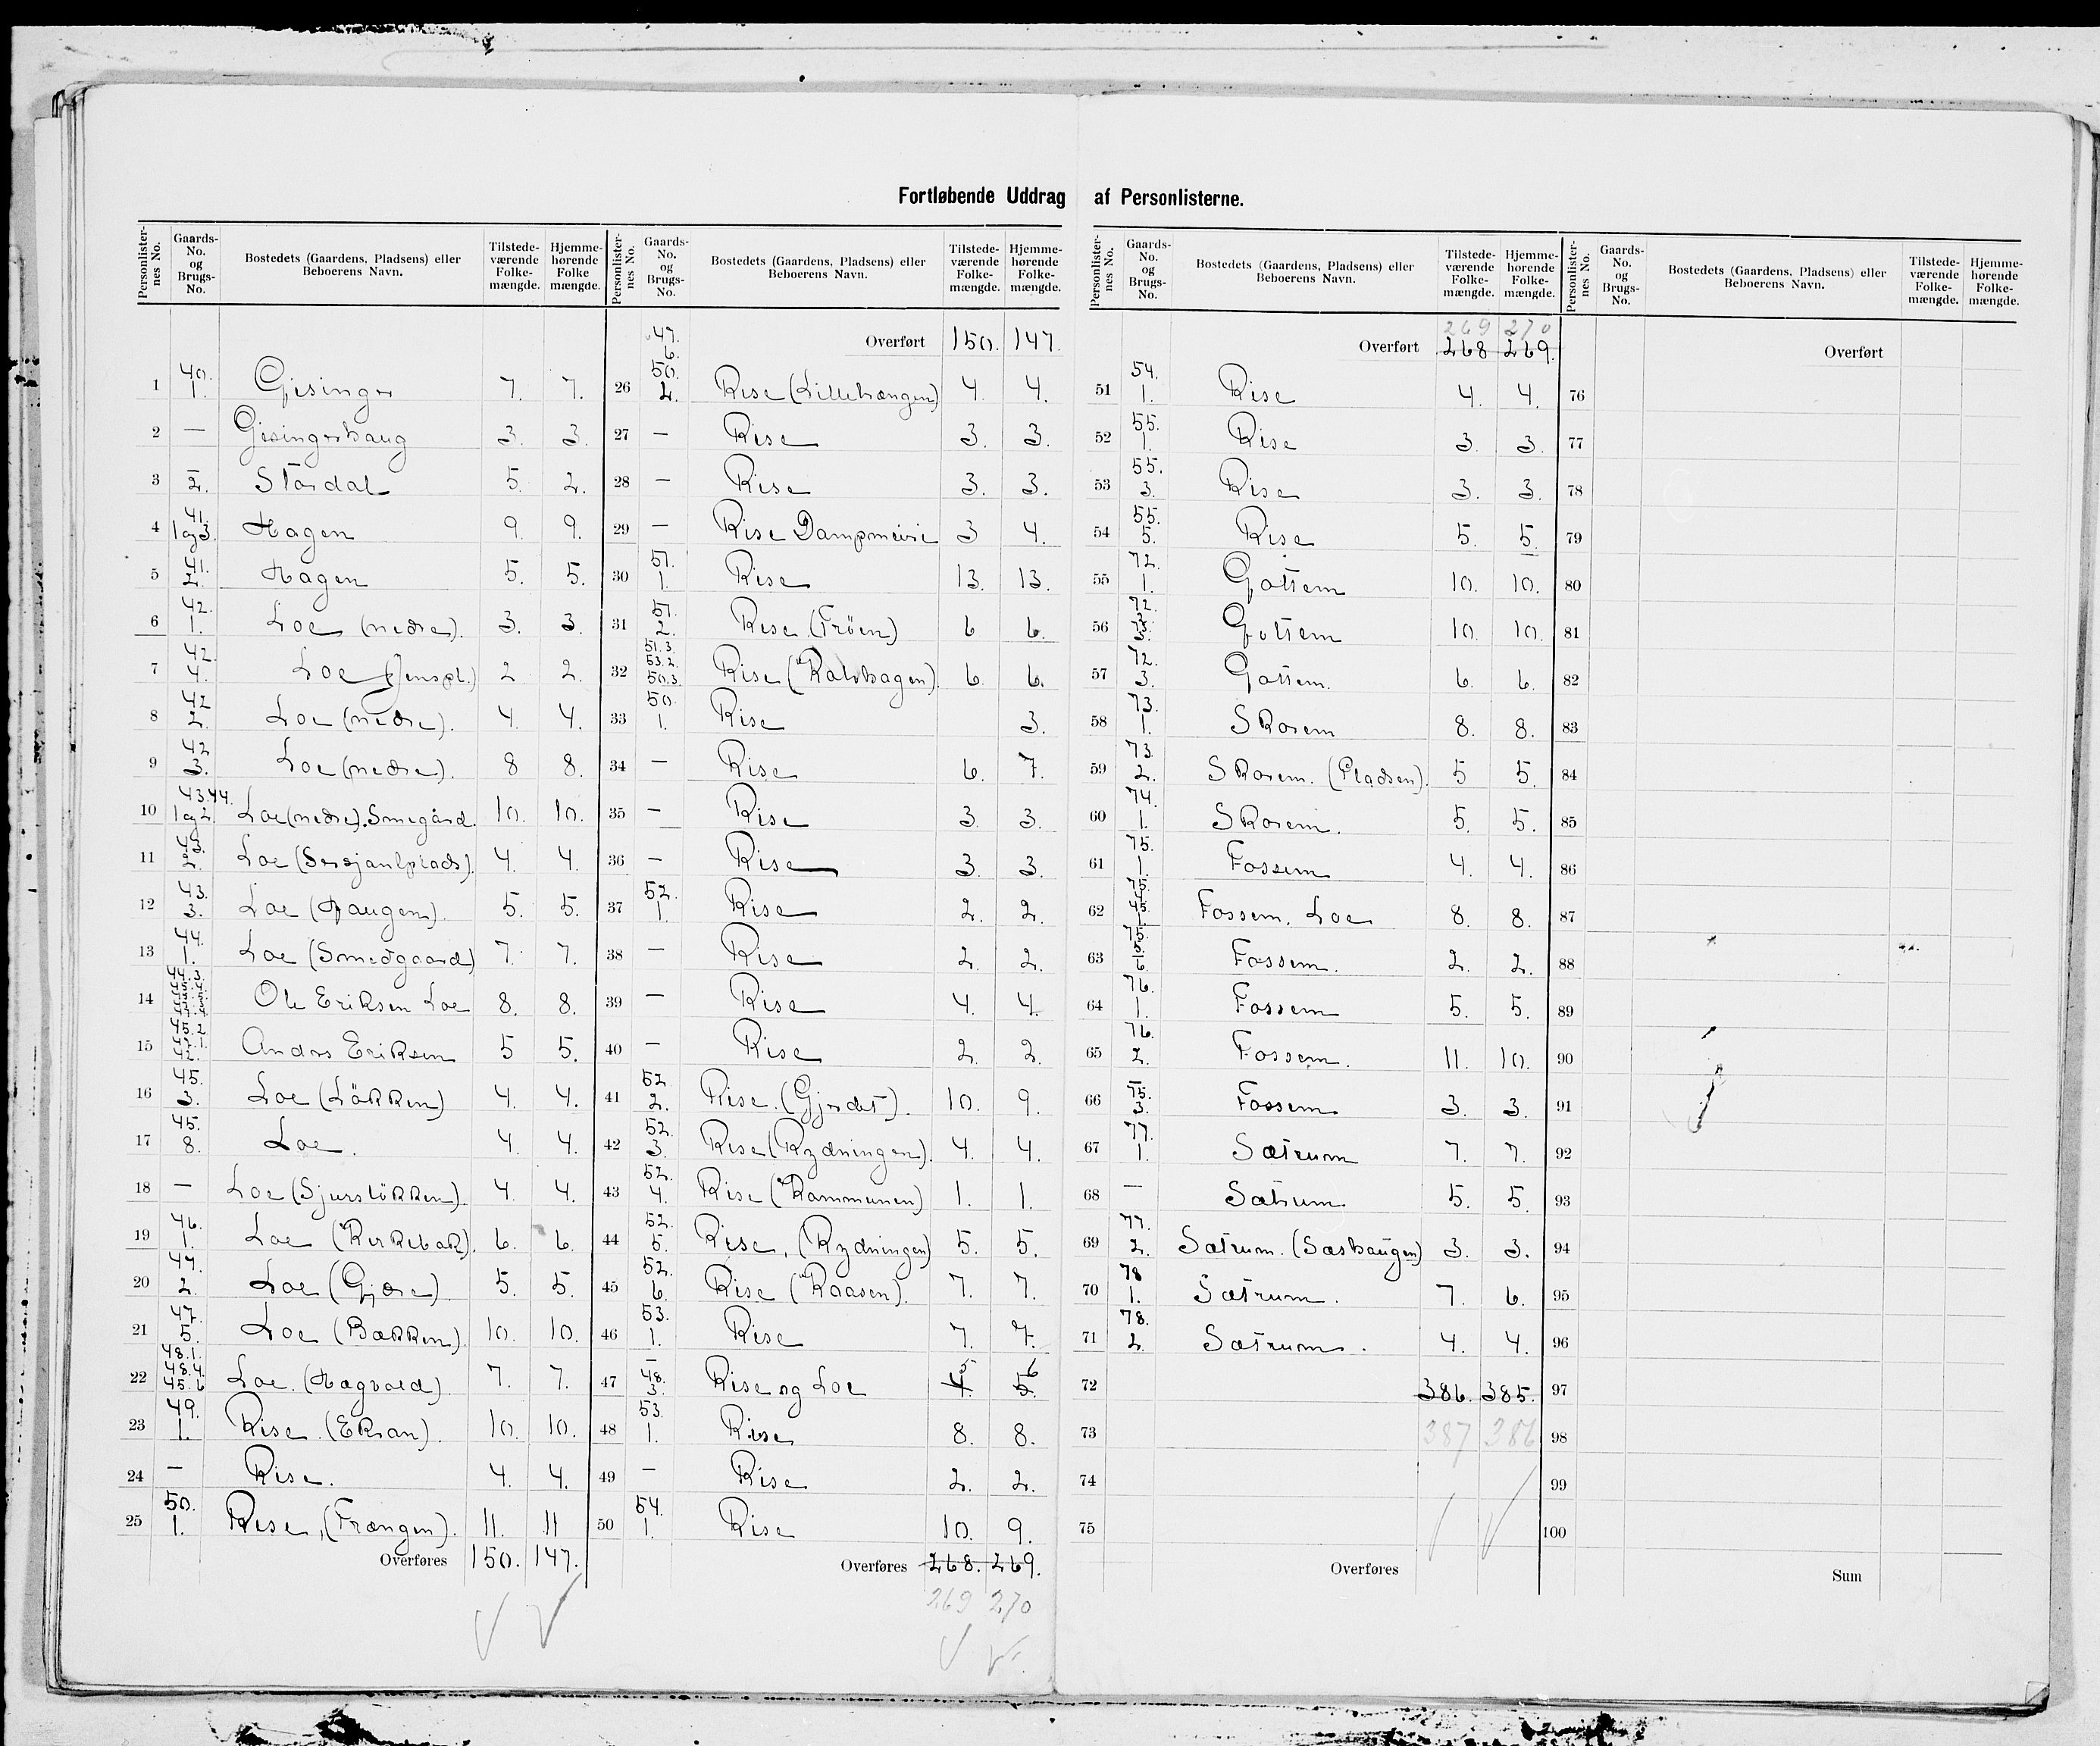 Fortløbende Uddrag af Personlisterne.
Personlisternes No. Gaards-No. og Brugs-No. Bostedets (Gaardens, Pladsens) eller Beboerens Navn. Tilstedeværende Folkemængde. Hjemmehørende Folkemængde.
1 40. 1. Gjesinger 7. 7.
2 — Gjesingerhaug 3. 3.
3 — 2. Stordal 5. 2.
4 41. 1 og 3. Hagen 9. 9.
5 41. 2. Hagen 5. 5.
6 42. 1. Loe (nedre). 3. 3.
7 42. 4. Loe (Jenspl.) 2 2.
8 42 2. Loe (nedre). 4. 4.
9 42 3. Loe (nedre). 8 8.
10 43. 44. 1 og 2. Loe (nedre). Smegård. 10. 10.
11 43. 2. Loe (Sersjantplads). 4. 4.
12 43. 3. Loe (Haugen). 5. 5.
13 44. 1. Loe (Smedgaard) 7. 7.
14 44.3. Ole Eriksen Loe 8. 8.
15 45.2 Anders Eriksen 5 5.
16 45. 3. Loe (Løkken) 4. 4.
17 45. 8. Loe. 4. 4.
18 — Loe (Sjursløkken). 4. 4.
19 46. 1. Loe (Kirkebak). 6. 6.
20 47. 2. Loe (Gjære) 5. 5.
21 47. 5. Loe (Bakken). 10. 10.
22 48.1. 48.4. 45.6 Loe. (Hagvold). 7. 7.
23 49. 1. Rise. (Ekran). 10. 10.
24 — Rise. 4. 4.
25 50. 1. Rise, (Frængen). 11. 11
Overføres 150. 147.
47. 6. Overført 150. 147.
26 50. 2. Rise (Lillehaugen) 4. 4.
27 — Rise 3. 3.
28 — Rise 3. 3.
29 — Rise Dampmeieri 3 4.
30 51. 1. Rise 13. 13.
31 51. 2. Rise (Frøen) 6 6.
32 51.3. 53.2. 50.3. Rise (Kalvhagen). 6. 6.
33 50. 1. Rise 3.
34 — Rise 6. 7.
35 — Rise 3. 3.
36 — Rise 3. 3.
37 52. 1. Rise 2. 2.
38 — Rise 2. 2.
39 — Rise 4. 4.
40 — Rise 2. 2.
41 52. 2. Rise. (Gjerdet). 10. 9.
42 52. 3. Rise (Rydningen). 4. 4.
43 52. 4. Rise (Kammunen) 1. 1.
44 52. 5. Rise, (Rydningen) 5. 5.
45 52. 6. Rise (Kaasen). 7. 7.
46 53. 1. Rise 7. 7.
47 — 48. 3. Rise og Loe 4. 5 5. 6
48 53. 1. Rise 8. 8.
49 — Rise 2. 2.
50 54. 1. Rise 10. 9.
Overføres 268. 269.
269 270
269 270
Overført 268 269.
51 54. 1. Rise 4. 4.
52 55. 1. Rise 3. 3.
53 55. 3. Rise 3. 3.
54 55. 5. Rise 5. 5.
55 72. 1. Gottem 10. 10.
56 72. Gottem 10. 10.
57 72. 3. Gottem. 6. 6.
58 73. 1. Skorem 8. 8.
59 73. 2. Skorem. (Pladsen). 5 5.
60 74. 1. Skorem. 5. 5.
61 75. 1. Fossem 4. 4.
62 75. 4. 45. 1. Fossem. Loe 8. 8.
63 75. 5. 6. Fossem. 2. 2.
64 76. 1. Fossem 5. 5.
65 76. 2. Fossem. 11. 10.
66 — 75. 3. Fossem 3. 3.
67 77. 1. Sætrum 7. 7.
68 — Sætrum 5. 5.
69 77. 2. Sætrum. (Sæshaugen) 3. 3.
70 78 1. Sætrum. 7. 6.
71 78. 2. Sætrum. 4. 4.
72 386. 385.
73 387 386
74
75
Overføres
Overført
76
77
78
79
80
81
82
83
84
85
86
87
88
89
90
91
92
93
94
95
96
97
98
99
100
Sum